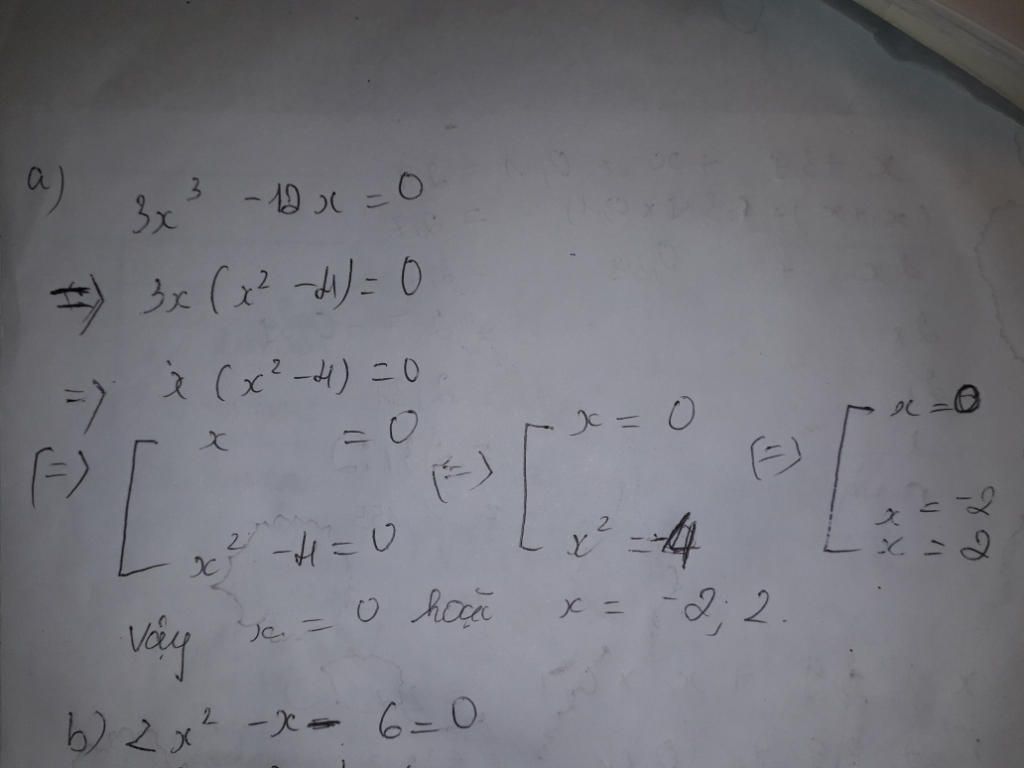 a) 3x³ - 12x = 0
=> 3x (x² - 4) = 0
=> x (x² - 4) = 0
(=> [ x = 0 (=> [ x = 0 (=> [ x = 0
x² - 4 = 0 x² = 4 x = -2
x = 2
Vậy x = 0 hoặc x = -2; 2.
b) 2x² - x - 6 = 0